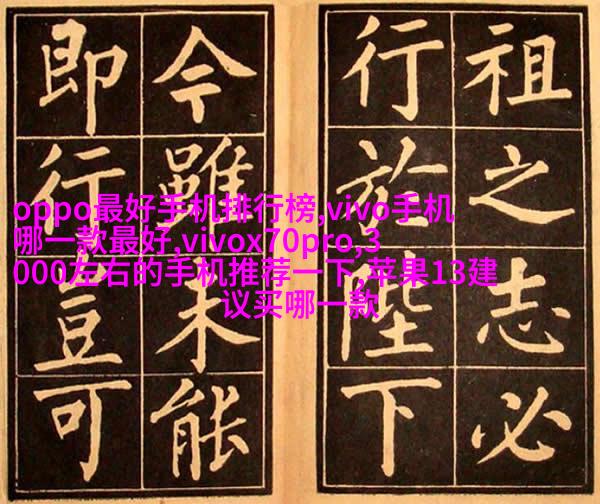 祖之志必
行於陛下
今雖未能
即行豈可
oppo最好手机排行榜,vivo手机
哪一款最好,vivox70pro,3
000左右的手机推荐一下,苹果13建
议买哪一款